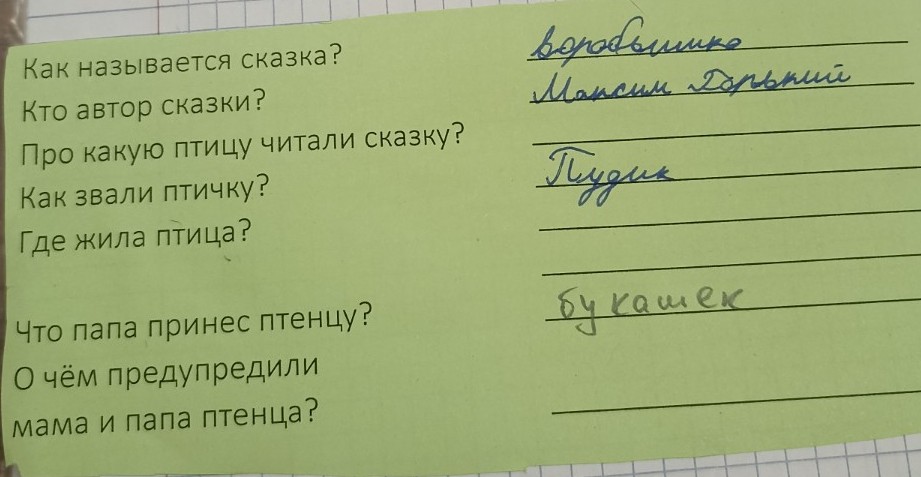 Как называется сказка? Воробьишко
Кто автор сказки? Максим Горький
Про какую птицу читали сказку?
Как звали птичку? Пудик
Где жила птица?
Что папа принес птенцу? букашек
О чём предупредили
мама и папа птенца?